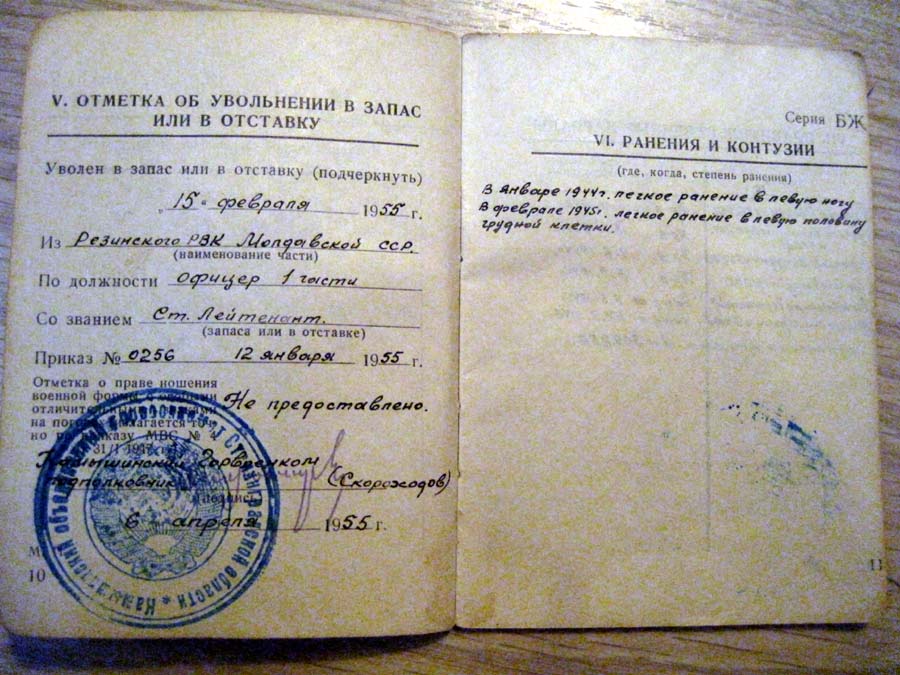 V. ОТМЕТКА ОБ УВОЛЬНЕНИИ В ЗАПАС
ИЛИ В ОТСТАВКУ
Уволен в запас или в отставку (подчеркнуть)
„15“ февраля 1955 г.
Из Резинского РВК Молдавской ССР.
(наименование части)
По должности офицер 1 части
Со званием Ст. Лейтенант.
(запаса или в отставке)
Приказ № 0256 12 января 1955 г.
Отметка о праве ношения
военной формы с
отличительными
на по
но приказу МВС №
31/I 1947
Не предоставлено.
Камышинский Горвоенком
подполковник (Скороходов)
(подпись)
6 апреля 1955 г.
10
Камышинский объединенный Сталинградской области
Серия БЖ
VI. РАНЕНИЯ И КОНТУЗИИ
(где, когда, степень ранения)
В январе 1944г. легкое ранение в левую ногу
В феврале 1945г. легкое ранение в левую половину
грудной клетки.
11